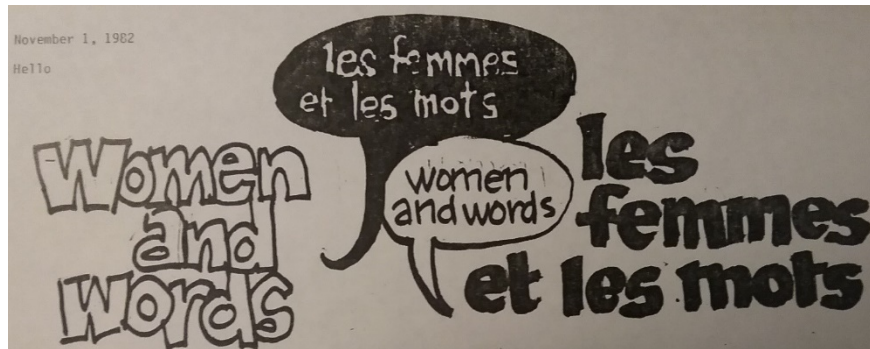 November 1, 1982
Hello
Women
and
Words
les femmes
et les mots
women
and words
les
femmes
et les mots